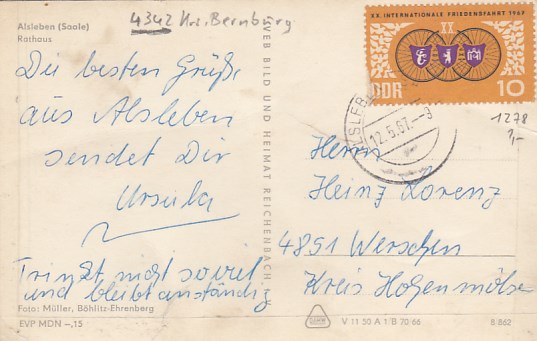 Alsleben (Saale)
Rathaus
4342 Krs. Bernburg
Die besten Grüße
aus Alsleben
sendet Dir
Ursula
Trinkt nicht soviel
und bleibt anständig
Foto: Müller, Böhlitz-Ehrenberg
EVP MDN –,15
VEB BILD UND HEIMAT REICHENBACH
XX. INTERNATIONALE FRIEDENSFAHRT 1967
XX
DDR 10
ALSLEBE
12.5.67.-9
1278
Herrn
Heinz Lorenz
4851 Werschen
Kreis Hohenmölsen
V 11 50 A 1/B 70 66
8 862